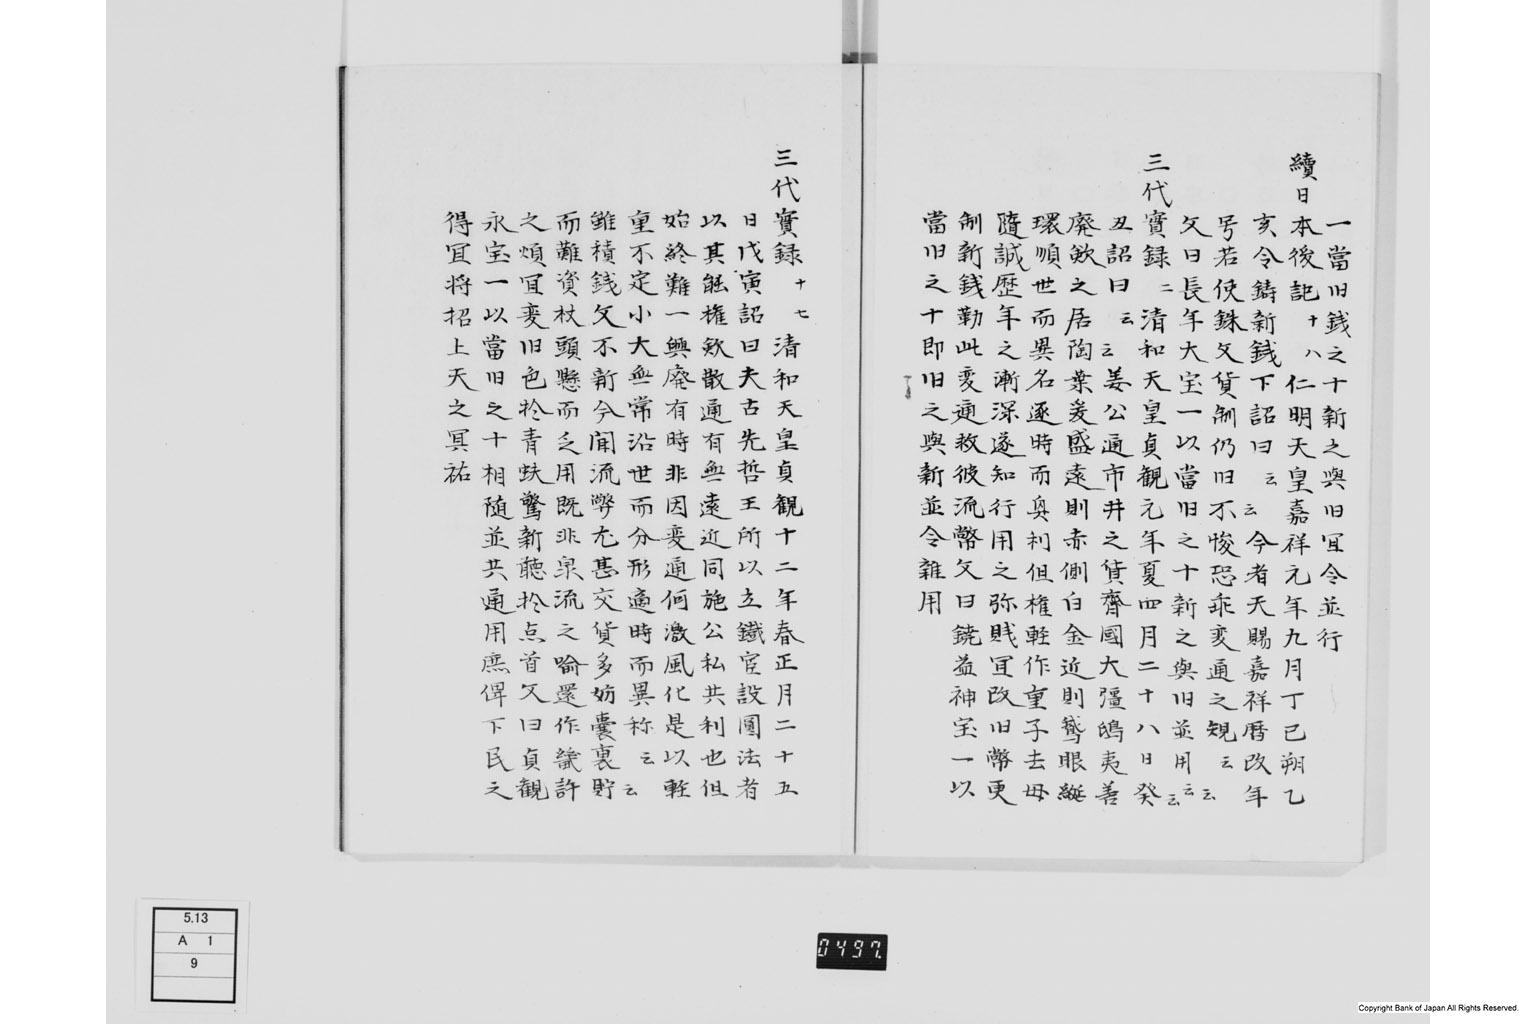 一當旧銭之十新之與旧冝令並行
續日本後記十八仁明天皇嘉祥元年九月丁巳朔乙
亥令鋳新銭下詔曰云云今者天賜嘉祥暦改年
号若使銖文貨制仍旧不悛恐乖変通之規云云
文曰長年大宝一以當旧之十新之與旧並用云云
三代實録二清和天皇貞観元年夏四月二十八日癸
丑詔曰云云姜公通市井之貨齊國大彊鴟夷善
廃欸之居陶葉爰盛遠則赤側白金近則鵞眼綖
環順世而異名逐時而與利但権軽作重子去母
隨誠歴年之漸深遂知行用之弥賎冝改旧幣更
制新銭勤此変通救彼流幣文曰饒益神宝一以
當旧之十即旧之與新並令雜用
三代實録十七清和天皇貞観十二年春正月二十五
日戊寅詔曰夫古先哲王所以立鐵官設圓法者
以其能権欸散通有無遠近同施公私共利也但
始終難一興廃有時非因変通何激風化是以軽
重不定小大無常沿世而分形適時而異称云云
雖積銭文不新今聞流弊尤甚交貨多妨嚢裏貯
而難資杖頭懸而乏用既非泉流之喩還作繦許
之煩冝変旧色於青蚨驚新聴於点首文曰貞観
永宝一以當旧之十相随並共通用庶俾下民之
得冝将招上天之冥祐
5.13
A 1
9
0497.
Copyright Bank of Japan All Rights Reserved.